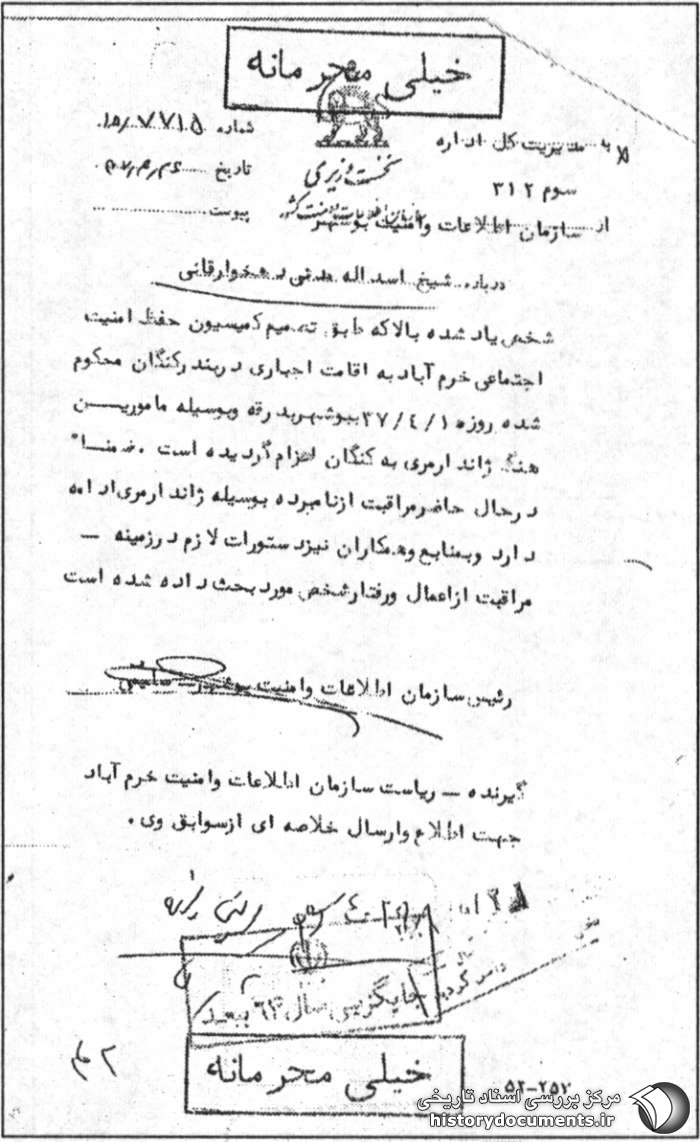 خیلی محرمانه
شماره ۷۷۱۵
به مدیریت کل اداره
نخست وزیری
تاریخ
سوم ۳۱۲
سازمان اطلاعات و امنیت کشور
پیوست
از سازمان اطلاعات وامنیت بوشهر
درباره شیخ اسداله مدنی دهخوارقانی
شخص یاد شده بالا که طبق تصمیم کمیسیون حفظ امنیت
اجتماعی خرم آباد به اقامت اجباری در بندر کنگان محکوم
شده روز ۳۷/٤/۱۰ ببوشهر بدرقه وبوسیله مامورین
هنگ ژاندارمری به کنگان اعزام گردیده است . ضمناً
درحال حاضر مراقبت ازنامبرده بوسیله ژاندارمری ادامه
دارد وبمنابع وهمکاران نیزدستورات لازم درزمینه –
مراقبت ازاعمال ورفتار شخص مورد بحث داده شده است
رئیس سازمان اطلاعات وامنیت بوشهر –
گیرنده – ریاست سازمان اطلاعات وامنیت خرم آباد
جهت اطلاع وارسال خلاصه ای ازسوابق وی .
جایگزین سال ۶۳ ببعد
خیلی محرمانه
۵۲-۲۵۲
مرکز بررسی اسناد تاریخی
historydocuments.ir